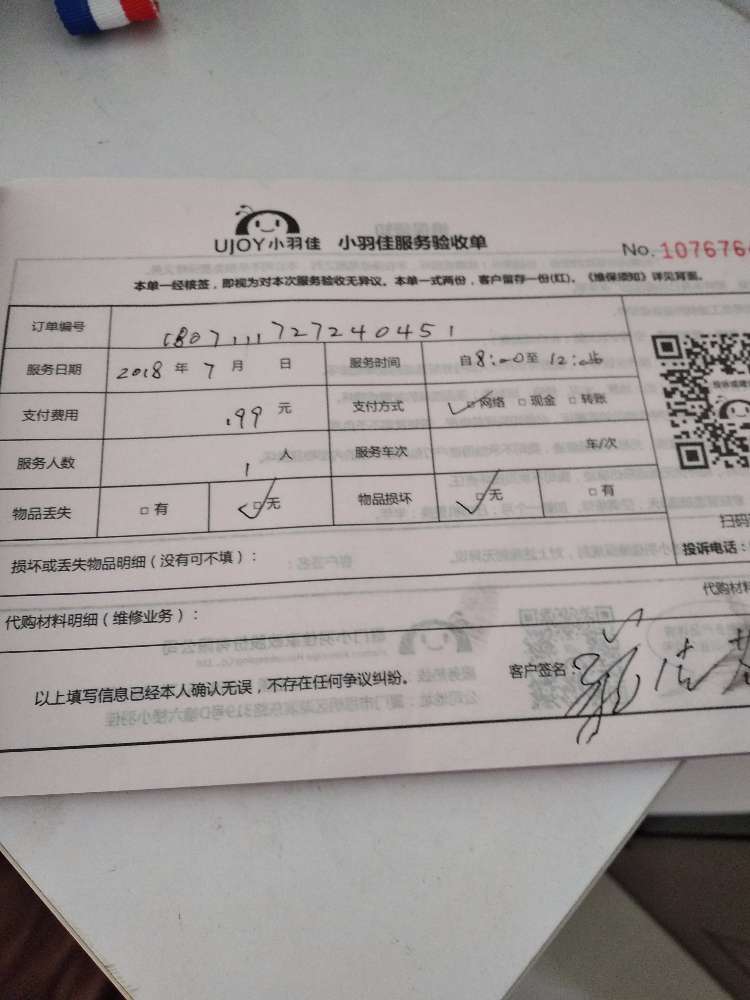 UJOY小羽佳 小羽佳服务验收单
No. 107676
本单一经核签，即视为对本次服务验收无异议。本单一式两份，客户留存一份(红)。《维保须知》详见背面。
订单编号 180711172724045 1
服务日期 2018 年 7 月 日 服务时间 自 8:00 至 12:00
支付费用 .99 元 支付方式 ☑网络 □现金 □转账
服务人数 1 人 服务车次 车/次
物品丢失 □有 ☑无 物品损坏 ☑无 □有
扫码
投诉电话：
损坏或丢失物品明细（没有可不填）：
代购材料
代购材料明细（维修业务）：
以上填写信息已经本人确认无误，不存在任何争议纠纷。 客户签名：